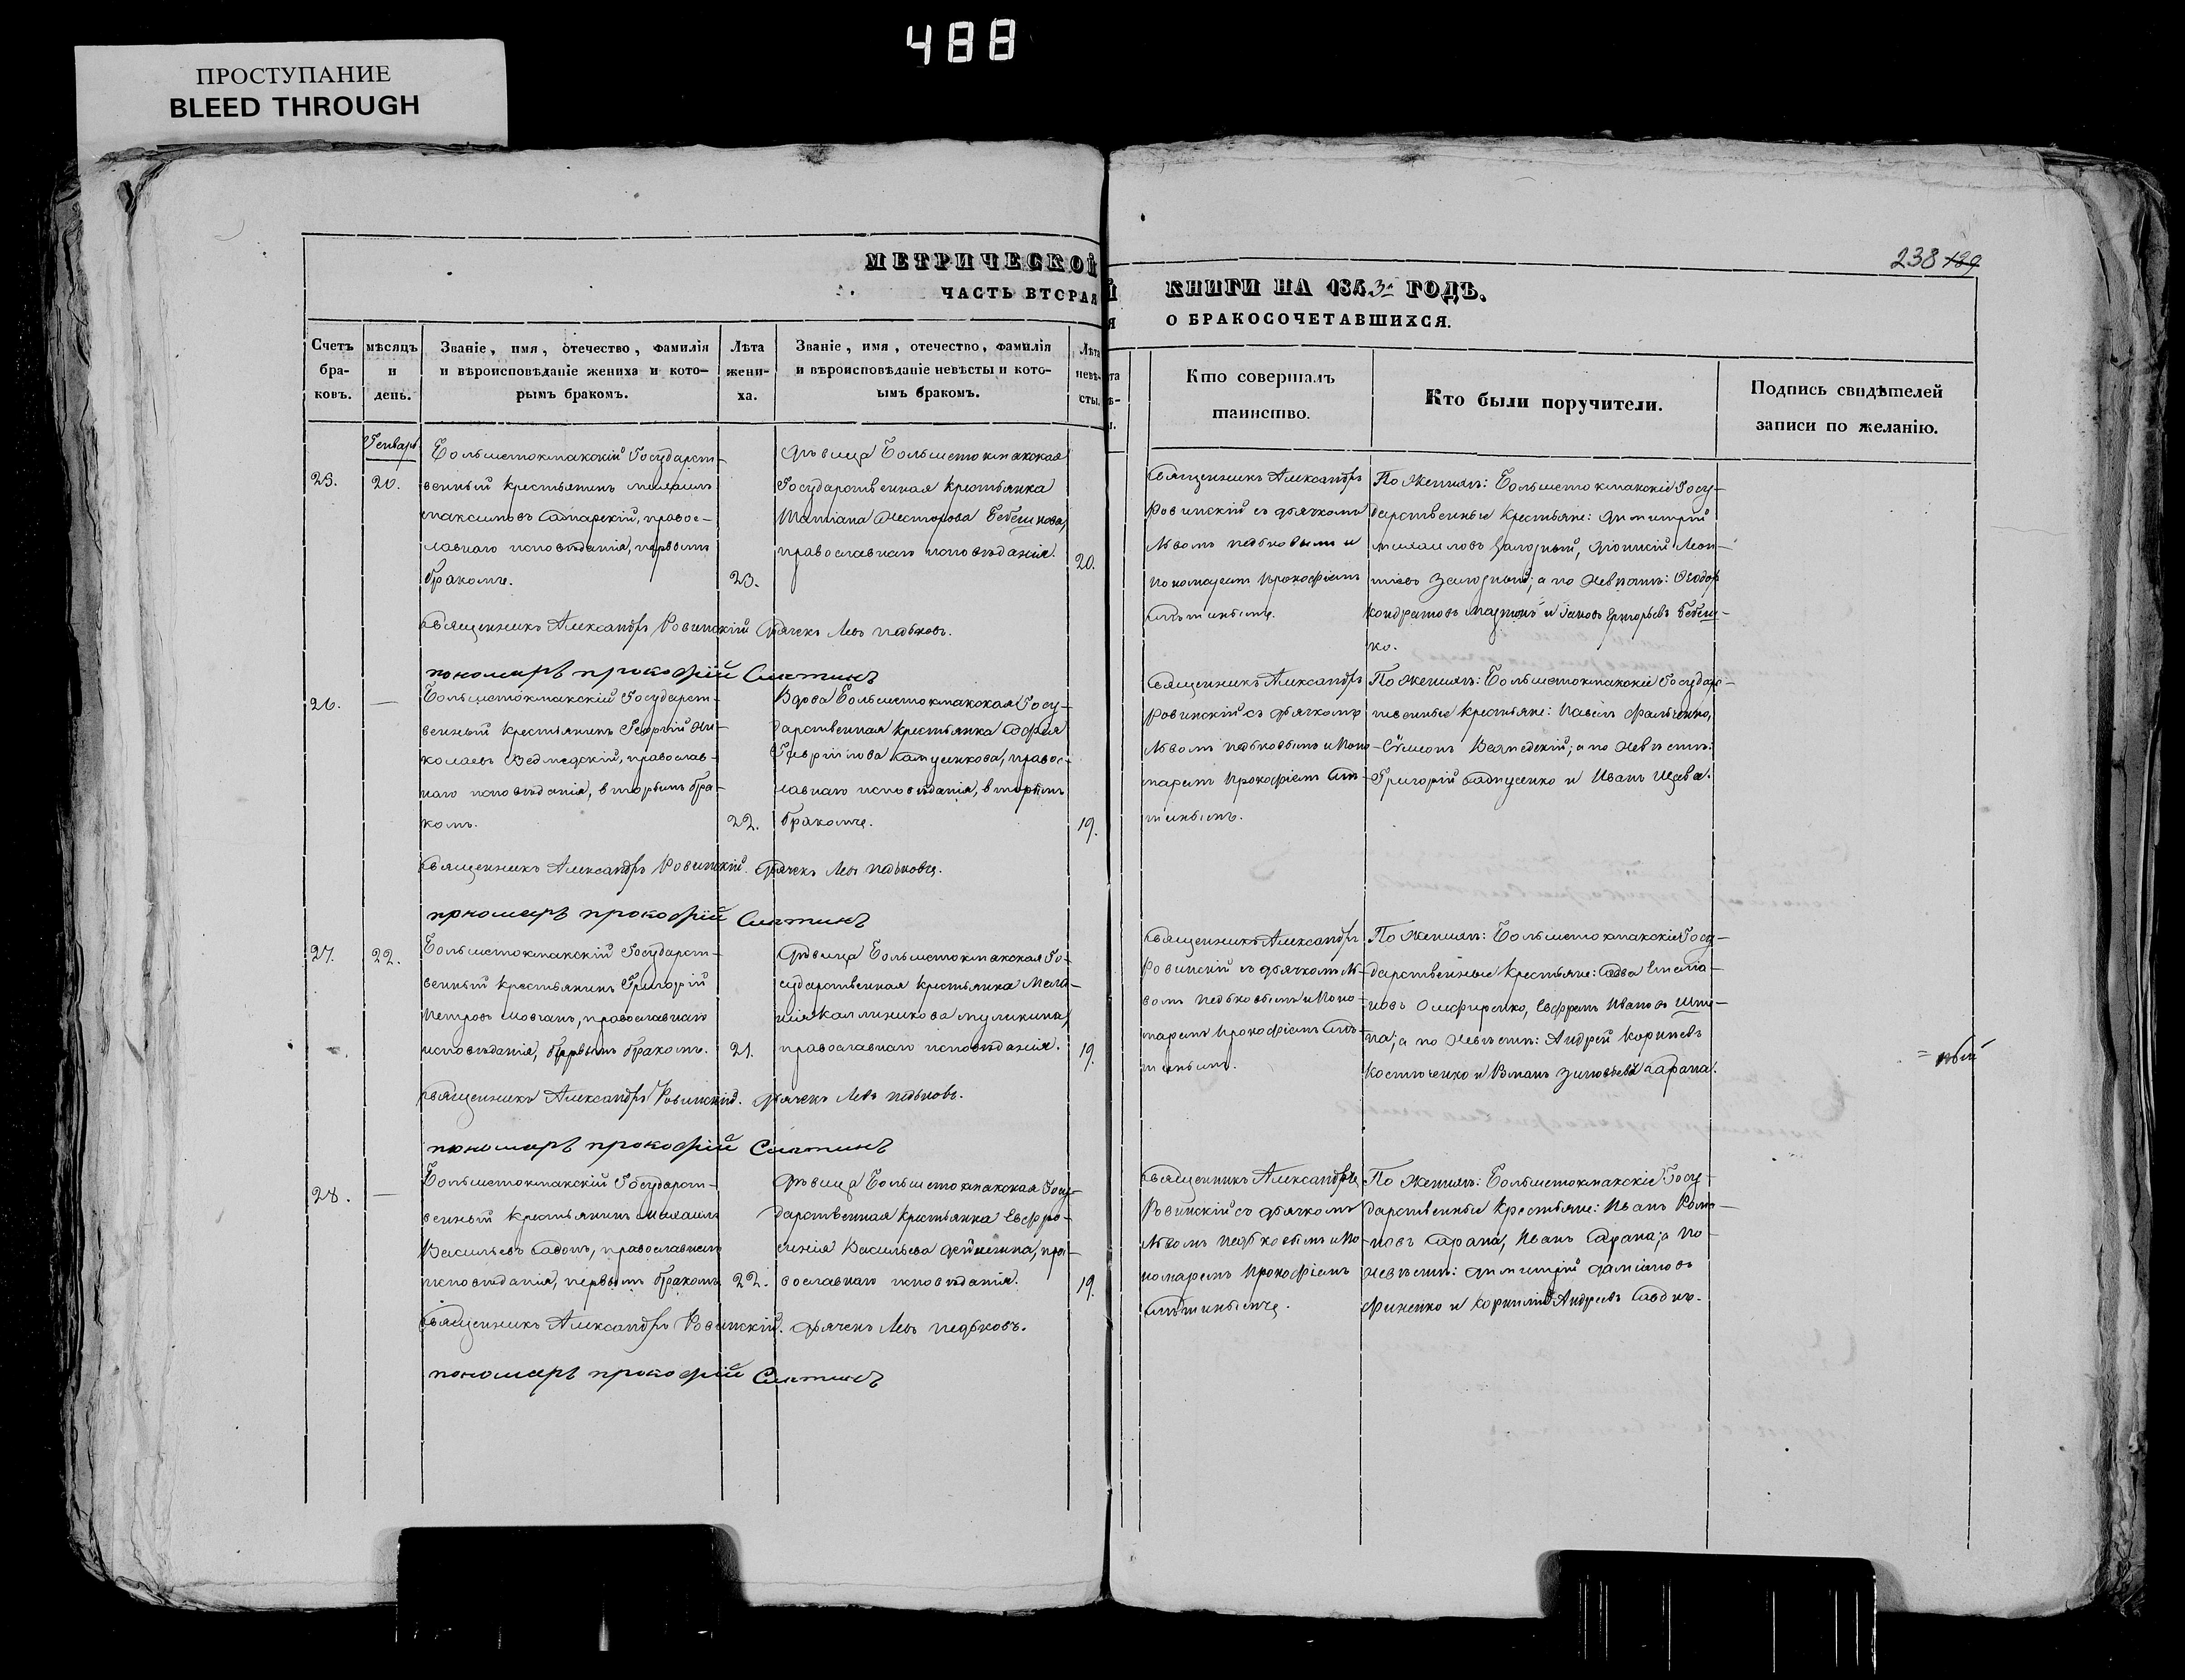 488
ПРОСТУПАНИЕ
BLEED THROUGH
238 189
МЕТРИЧЕСКОЙ
ЧАСТЬ ВТОРАЯ
КНИГИ НА 1843й ГОДЪ.
О БРАКОСОЧЕТАВШИХСЯ.
Счетъ бра-ковъ.
мѣсяцъ и день.
Званіе, имя, отечество, фамилія
и вѣроисповѣданіе жениха и кото-
рымъ бракомъ.
Лѣта жени-ха.
Званіе, имя, отечество, фамилія
и вѣроисповѣданіе невѣсты и кото-
ымъ бракомъ.
Лѣта невѣ-сты.
Кто совершалъ
таинство.
Кто были поручители.
Подпись свидѣтелей
записи по желанію.
Генварь
25.
20.
Большетокмакскій Государст-
венный крестьянинъ Михаилъ
Максимовъ правос-
лавнаго исповѣданія, первымъ
бракомъ.
23.
Дѣвица Большетокмакская
Государственная крестьянка
Татіана Несторова
православнаго исповѣданія.
20.
Священникъ Александръ
Ровинскій съ дьячкомъ
Львомъ Педьковымъ и
пономаремъ Прокофіемъ
По Женихѣ: Большетокмакскіе Госу-
дарственные крестьяне: Димитрій
Михаиловъ Леон-
тіевъ а по Невѣстѣ: Ѳеодоръ
Кондратовъ и Яковъ Григорьевъ Бебеш-
ко.
Священникъ Александръ Ровинскій Дячекъ Левъ Педьковъ.
пономарь прокофій
26.
—
Большетокмакскій Государст-
венный крестьянинъ Георгій Ни-
колаевъ Ведмедскій, православ-
наго исповѣданія, вторымъ бра-
комъ.
22.
Вдова Большетокмакская Госу-
дарственная крестьянка Софія
Гавріилова правос-
лавнаго исповѣданія, вторымъ
бракомъ.
19.
Священникъ Александръ
Ровинскій съ дьячкомъ
Львомъ Педьковымъ и Поно-
маремъ Прокофіемъ
По Женихѣ: Большетокмакскіе Государс-
твенные крестьяне: Павелъ
Сѵмеонъ Ведмедскій; а по Невѣстѣ:
Григорій и Иванъ
Священникъ Александръ Ровинскій. Дячекъ Левъ Педьковъ.
пономарь прокофій
27.
22.
Большетокмакскій Государст-
венный крестьянинъ Григорій
Петровъ Мовчанъ, православнаго
исповѣданія, первымъ бракомъ.
21.
Дѣвица Большетокмакская Го-
сударственная крестьянка Мела-
нія Каллиникова
православнаго исповѣданія.
19.
Священникъ Александръ
Ровинскій съ дьячкомъ Ль-
вомъ Педьковымъ и Поно-
маремъ Прокофіемъ
По Женихѣ: Большетокмакскіе Госу-
дарственные крестьяне: Савва Емелія-
новъ Евфремъ Ивановъ
а по Невѣстѣ: Андрей Корнѣевъ
Костюченко и
Священникъ Александръ Ровинскій. Дячекъ Левъ Педьковъ.
пономарь прокофій
28.
—
Большетокмакскій Государст-
венный крестьянинъ Михаилъ
Васильевъ православнаго
исповѣданія, первымъ бракомъ.
22.
Дѣвица Большетокмакская Госу-
дарственная крестьянка Евфро-
синія Васильева пра-
вославнаго исповѣданія.
19.
Священникъ Александръ
Ровинскій съ дьячкомъ
Львомъ Педьковымъ и По-
номаремъ Прокофіемъ
По Женихѣ: Большетокмакскіе Госу-
дарственные крестьяне: Иванъ Рома-
новъ Сарана, Иванъ Сарана; а по
Невѣстѣ: Димитрій Даміановъ
Финенко и Корнилій Андреевъ
Священникъ Александръ Ровинскій. Дячекъ Левъ Педьковъ.
пономарь прокофій